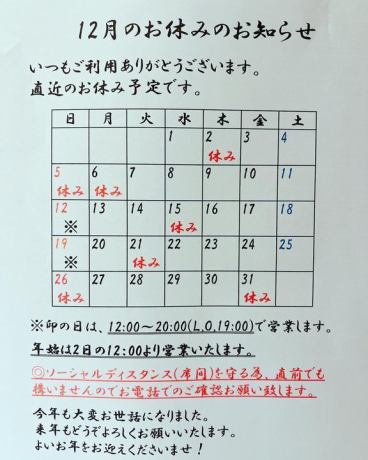 12月のお休みのお知らせ
いつもご利用ありがとうございます。
直近のお休み予定です。
日 月 火 水 木 金 土
1 2 3 4
休み
5 6 7 8 9 10 11
休み 休み
12 13 14 15 16 17 18
※ 休み
19 20 21 22 23 24 25
※ 休み
26 27 28 29 30 31
休み 休み
※印の日は、12:00～20:00(L,O,19:00)で営業します。
年始は2日の12:00より営業いたします。
◎ソーシャルディスタンス(席間)を守る為、直前でも
構いませんのでお電話でのご確認お願い致します。
今年も大変お世話になりました。
来年もどうぞよろしくお願いいたします。
よいお年をお迎えくださいませ！